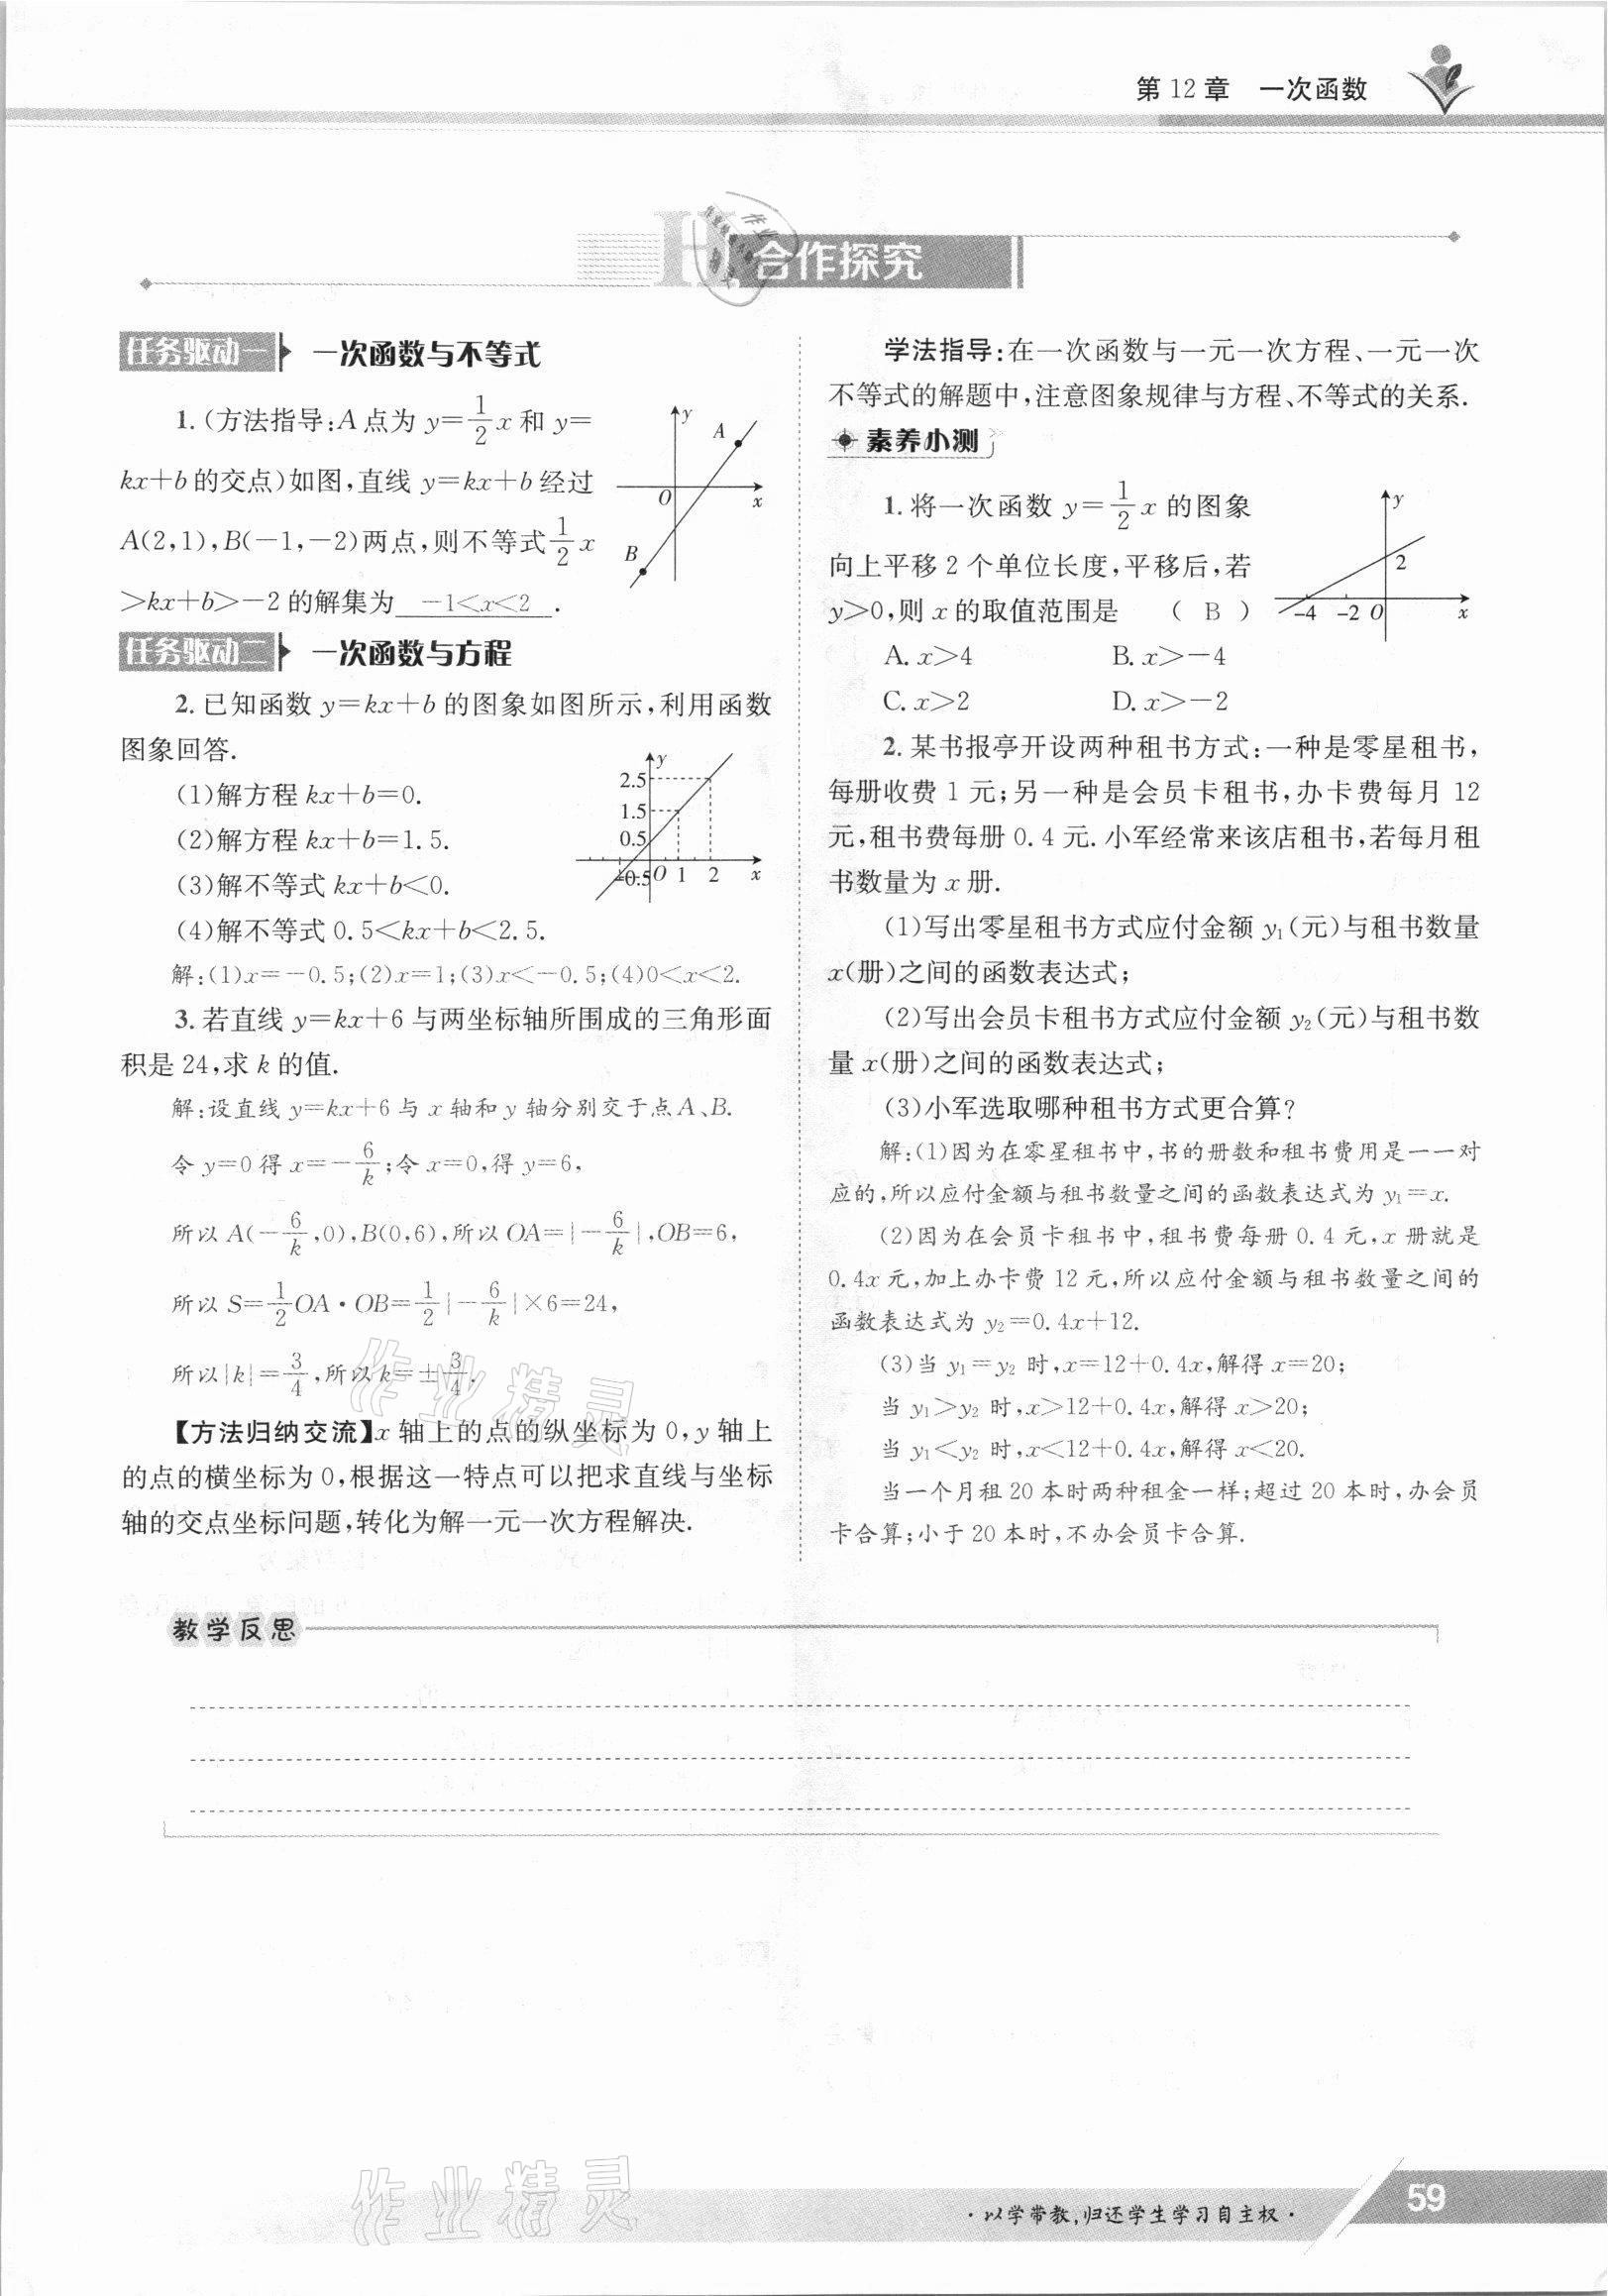 第12章 一次函数
合作探究
任务驱动一 一次函数与不等式
1.(方法指导:A点为y=1/2x和y=
kx+b的交点)如图,直线y=kx+b经过
A(2,1),B(-1,-2)两点,则不等式1/2x
>kx+b>-2的解集为 -1<x<2 .
y
A
O
x
B
任务驱动二 一次函数与方程
2.已知函数y=kx+b的图象如图所示,利用函数
图象回答.
(1)解方程kx+b=0.
(2)解方程kx+b=1.5.
(3)解不等式kx+b<0.
(4)解不等式0.5<kx+b<2.5.
y
2.5
1.5
0.5
-0.5 O 1 2 x
解:(1)x=-0.5;(2)x=1;(3)x<-0.5;(4)0<x<2.
3.若直线y=kx+6与两坐标轴所围成的三角形面
积是24,求k的值.
解:设直线y=kx+6与x轴和y轴分别交于点A、B.
令y=0得x=-6/k;令x=0,得y=6,
所以A(-6/k,0),B(0,6),所以OA=|-6/k|,OB=6,
所以S=1/2OA·OB=1/2|-6/k|×6=24,
所以|k|=3/4,所以k=±3/4.
【方法归纳交流】x轴上的点的纵坐标为0,y轴上
的点的横坐标为0,根据这一特点可以把求直线与坐标
轴的交点坐标问题,转化为解一元一次方程解决.
学法指导:在一次函数与一元一次方程、一元一次
不等式的解题中,注意图象规律与方程、不等式的关系.
素养小测
1.将一次函数y=1/2x的图象
向上平移2个单位长度,平移后,若
y>0,则x的取值范围是 ( B )
y
2
-4 -2 O x
A.x>4 B.x>-4
C.x>2 D.x>-2
2.某书报亭开设两种租书方式:一种是零星租书,
每册收费1元;另一种是会员卡租书,办卡费每月12
元,租书费每册0.4元.小军经常来该店租书,若每月租
书数量为x册.
(1)写出零星租书方式应付金额y₁(元)与租书数量
x(册)之间的函数表达式;
(2)写出会员卡租书方式应付金额y₂(元)与租书数
量x(册)之间的函数表达式;
(3)小军选取哪种租书方式更合算?
解:(1)因为在零星租书中,书的册数和租书费用是一一对
应的,所以应付金额与租书数量之间的函数表达式为y₁=x.
(2)因为在会员卡租书中,租书费每册0.4元,x册就是
0.4x元,加上办卡费12元,所以应付金额与租书数量之间的
函数表达式为y₂=0.4x+12.
(3)当y₁=y₂时,x=12+0.4x,解得x=20;
当y₁>y₂时,x>12+0.4x,解得x>20;
当y₁<y₂时,x<12+0.4x,解得x<20.
当一个月租20本时两种租金一样;超过20本时,办会员
卡合算;小于20本时,不办会员卡合算.
教学反思
作业精灵
作业精灵
·以学带教,归还学生学习自主权·
59